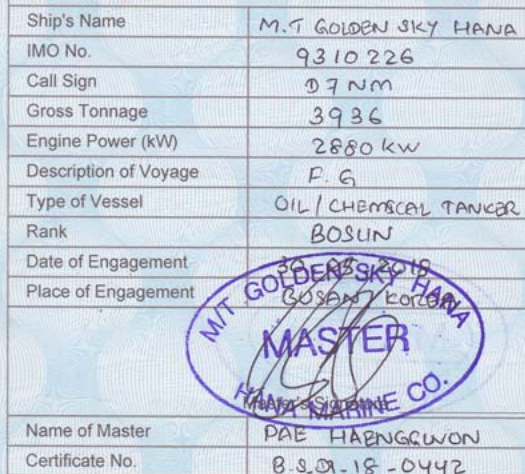 Ship's Name M.T GOLDEN SKY HANA
IMO No. 9310226
Call Sign D7NM
Gross Tonnage 3936
Engine Power (kW) 2880 KW
Description of Voyage F.G
Type of Vessel OIL/CHEMSCAL TANKER
Rank BOSUN
Date of Engagement 30 2018
Place of Engagement BUSAN KOREA
M/T GOLDEN SKY HANA
MASTER
HANA MARINE CO.
Master's Signature
Name of Master PAE HAENGGWON
Certificate No. -18-0442